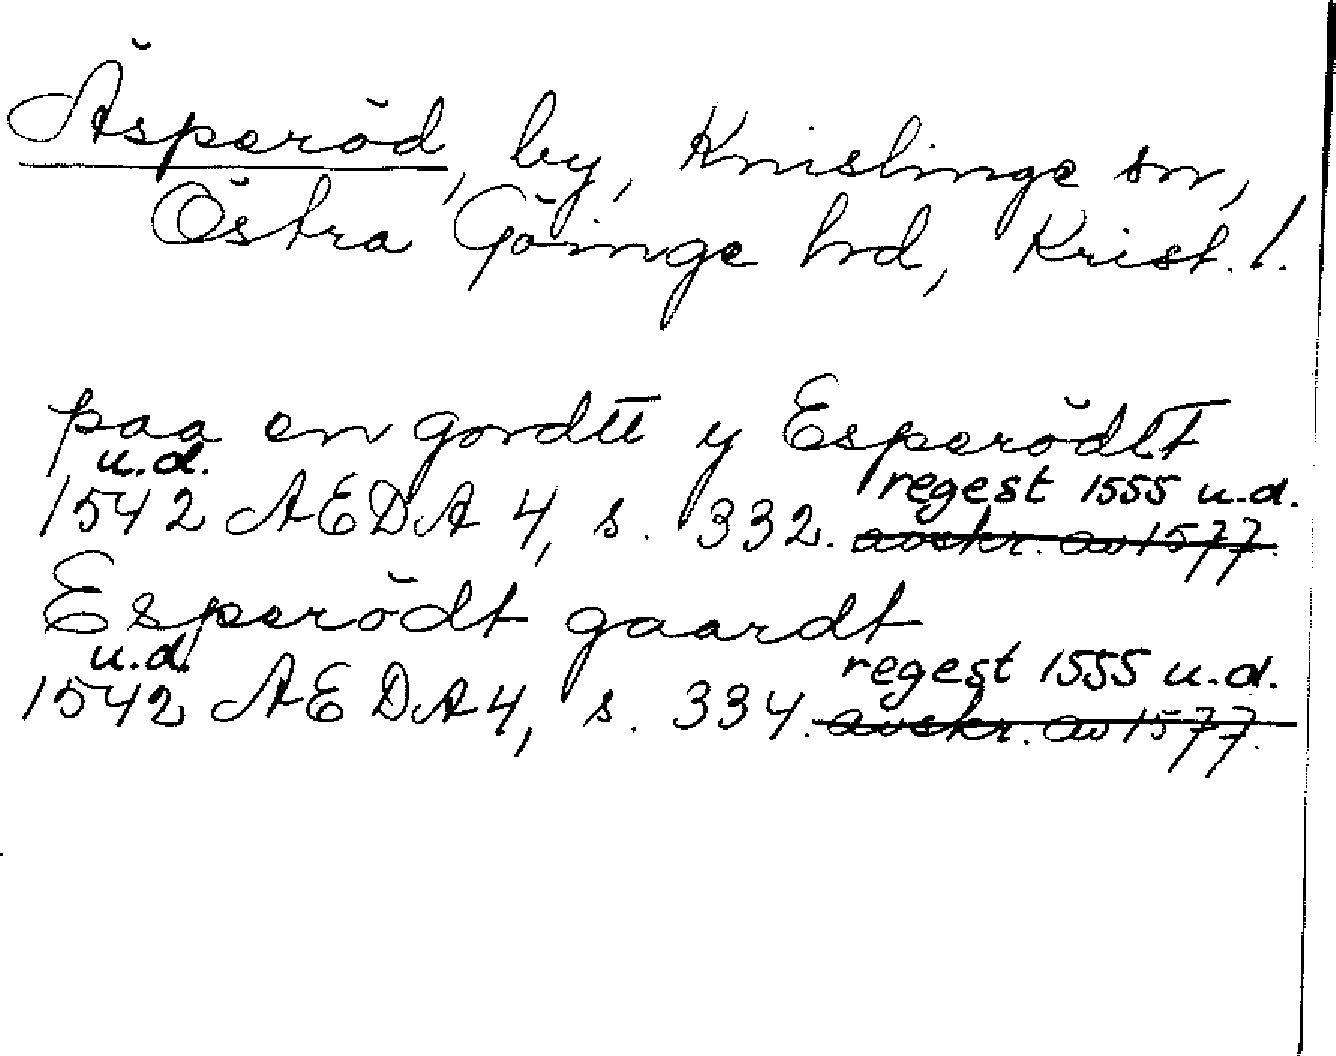 Äsperöd, by, Knislinge sn,
Östra Göinge hd, Krist. l.
paa en gordtt y Esperödtt
u.d.
1542 AEDA 4, s. 332. regest 1555 u.d.
avskr. av 1577.
Esperödt gaardt
u.d.
1542 AEDA 4, s. 334. regest 1555 u.d.
avskr. av 1577.